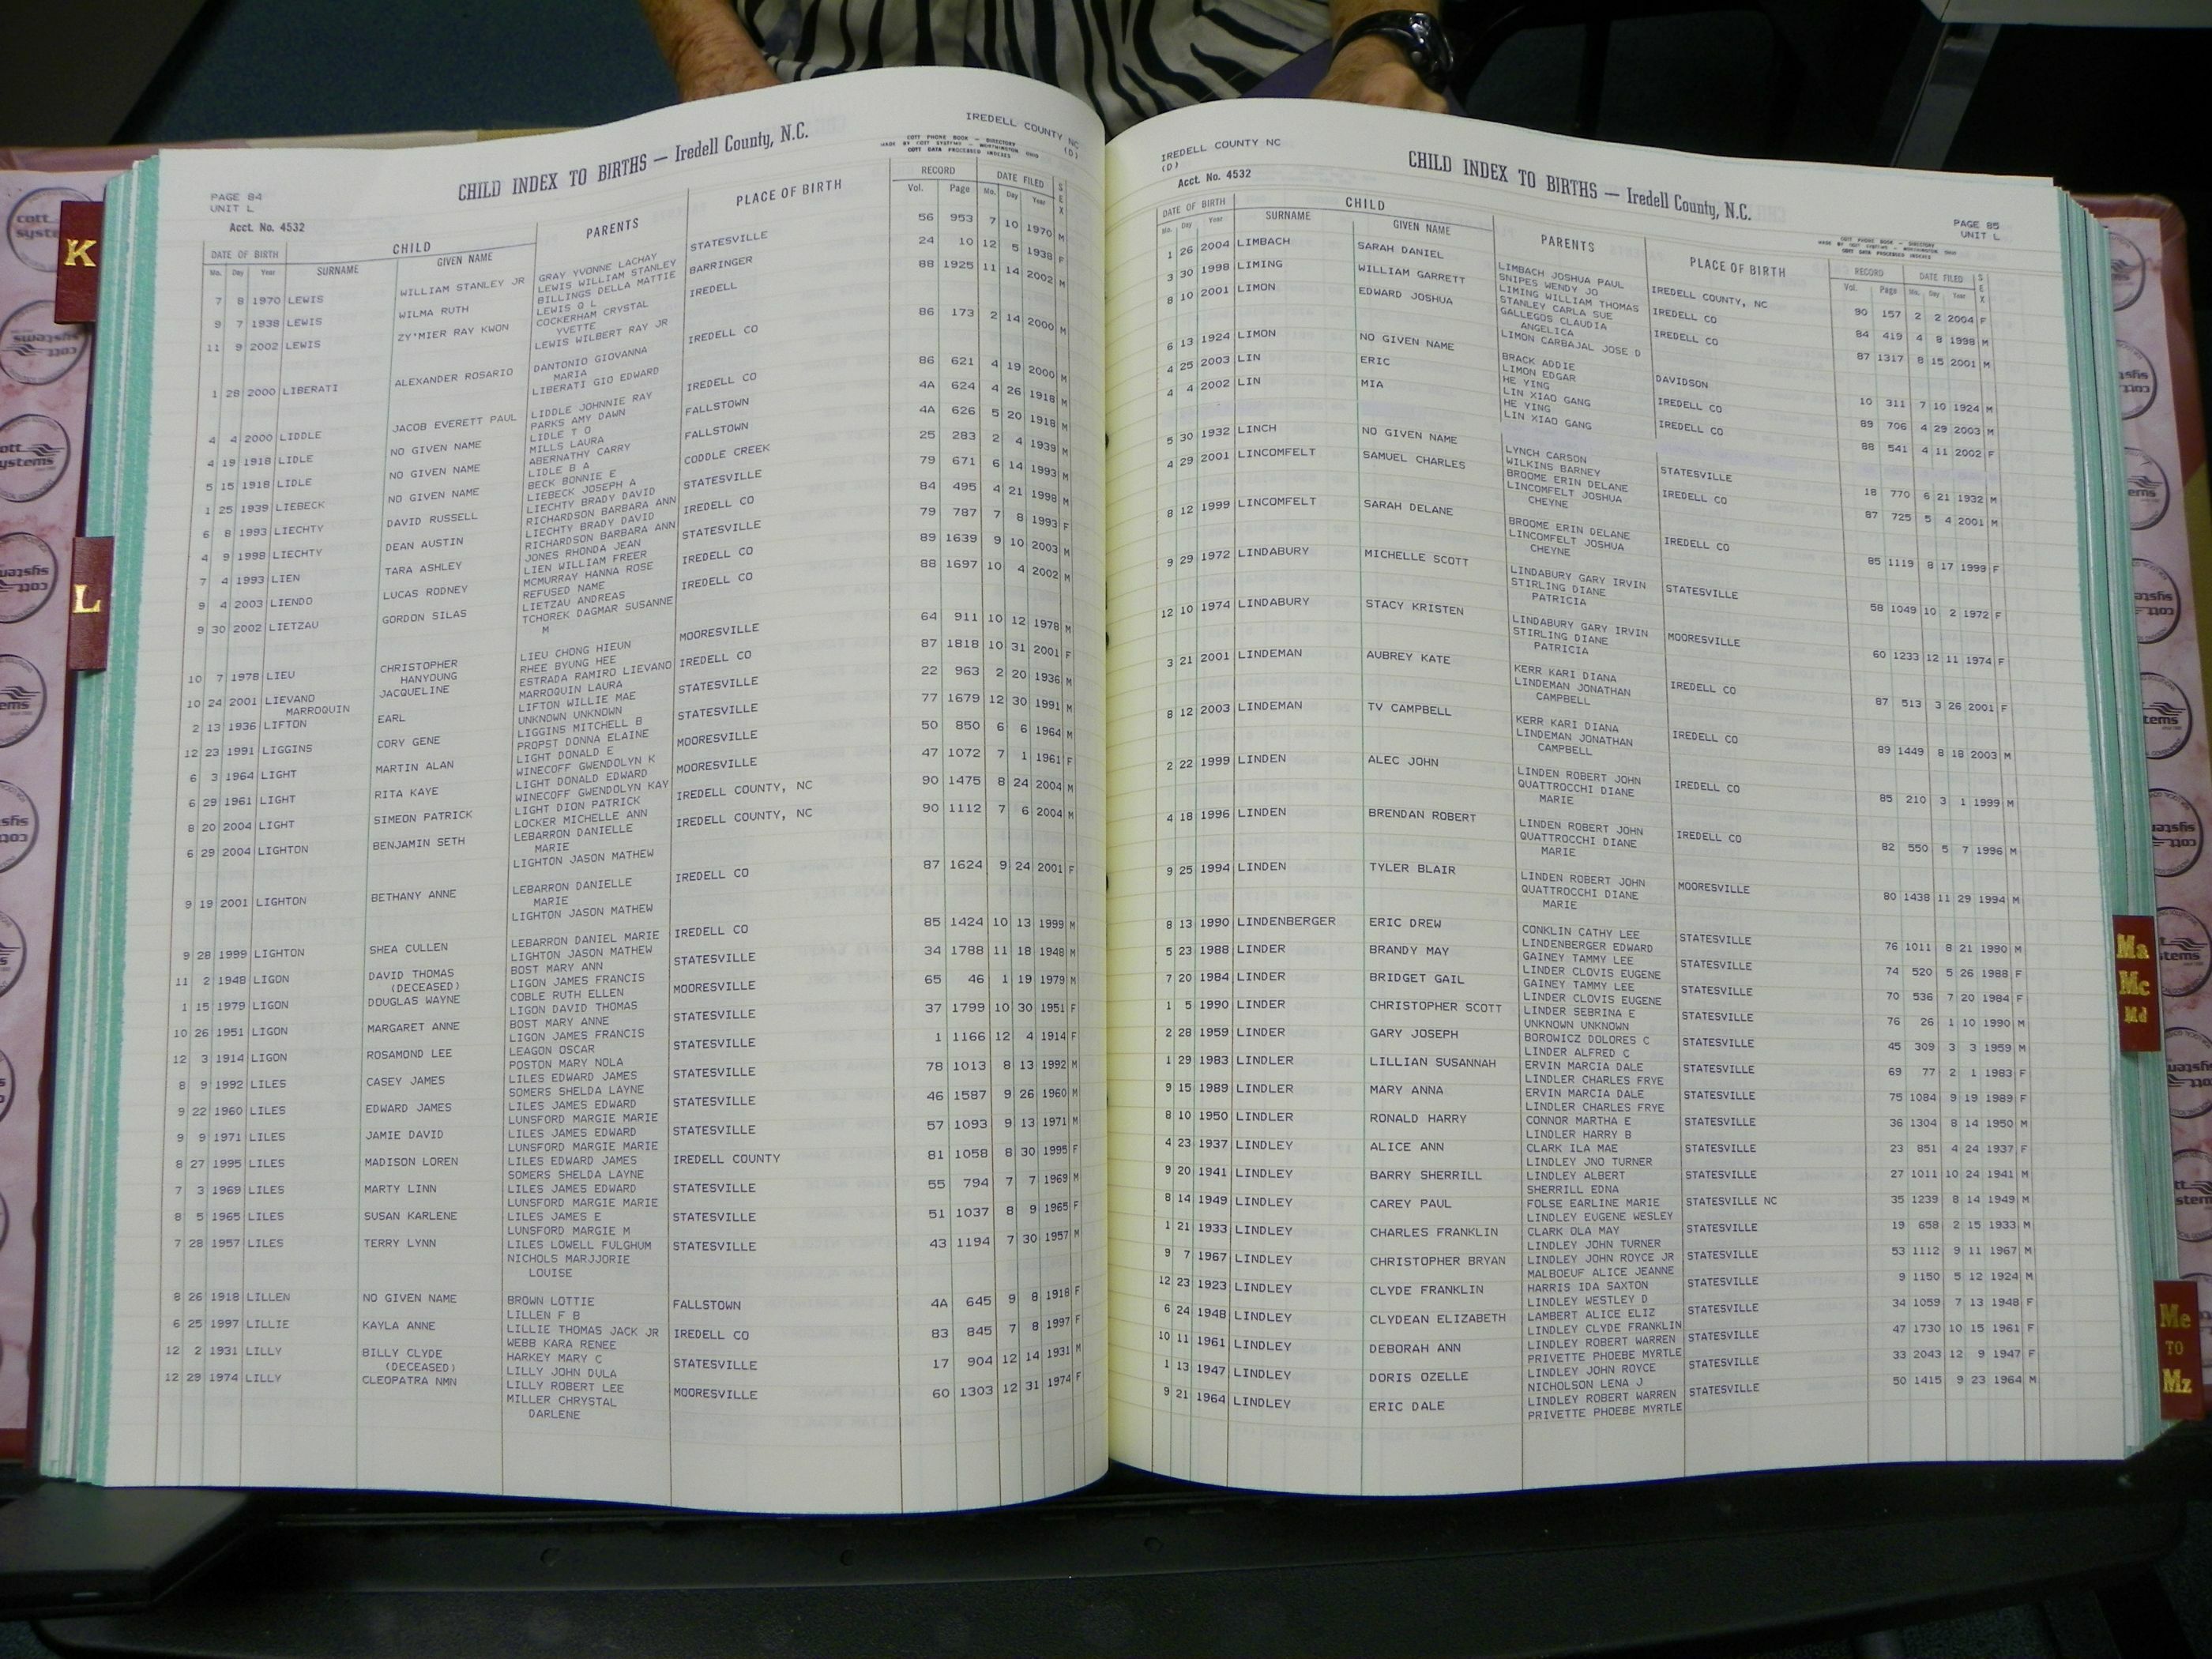 IREDELL COUNTY NC
(D)
CHILD INDEX TO BIRTHS — Iredell County, N.C.
COTT PHONE BOOK - DIRECTORY
MADE BY COTT SYSTEMS - WORTHINGTON, OHIO
COTT DATA PROCESSED INDEXES
PAGE 84
UNIT L
Acct. No. 4532
DATE OF BIRTH CHILD PARENTS PLACE OF BIRTH RECORD DATE FILED SEX
Mo. Day Year SURNAME GIVEN NAME Vol. Page Mo. Day Year
7 8 1970 LEWIS WILLIAM STANLEY JR GRAY YVONNE LACHAY STATESVILLE 56 953 7 10 1970 M
LEWIS WILLIAM STANLEY
9 7 1938 LEWIS WILMA RUTH BILLINGS DELLA MATTIE BARRINGER 24 10 12 5 1938 F
LEWIS Q L
11 9 2002 LEWIS ZY'MIER RAY KWON COCKERHAM CRYSTAL IREDELL 88 1925 11 14 2002 M
YVETTE
LEWIS WILBERT RAY JR
1 28 2000 LIBERATI ALEXANDER ROSARIO DANTONIO GIOVANNA IREDELL CO 86 173 2 14 2000 M
MARIA
LIBERATI GIO EDWARD
4 4 2000 LIDDLE JACOB EVERETT PAUL LIDDLE JOHNNIE RAY IREDELL CO 86 621 4 19 2000 M
PARKS AMY DAWN
4 19 1918 LIDLE NO GIVEN NAME LIDLE T O FALLSTOWN 4A 624 4 26 1918 M
MILLS LAURA
5 15 1918 LIDLE NO GIVEN NAME ABERNATHY CARRY FALLSTOWN 4A 626 5 20 1918 M
LIDLE B A
1 25 1939 LIEBECK NO GIVEN NAME BECK BONNIE E CODDLE CREEK 25 283 2 4 1939 M
LIEBECK JOSEPH A
6 8 1993 LIECHTY DAVID RUSSELL LIECHTY BRADY DAVID STATESVILLE 79 671 6 14 1993 M
RICHARDSON BARBARA ANN
4 9 1998 LIECHTY DEAN AUSTIN LIECHTY BRADY DAVID IREDELL CO 84 495 4 21 1998 M
RICHARDSON BARBARA ANN
7 4 1993 LIEN TARA ASHLEY JONES RHONDA JEAN STATESVILLE 79 787 7 8 1993 F
LIEN WILLIAM FREER
9 4 2003 LIENDO LUCAS RODNEY MCMURRAY HANNA ROSE IREDELL CO 89 1639 9 10 2003 M
REFUSED NAME
9 30 2002 LIETZAU GORDON SILAS LIETZAU ANDREAS IREDELL CO 88 1697 10 4 2002 M
TCHOREK DAGMAR SUSANNE
M
10 7 1978 LIEU CHRISTOPHER LIEU CHONG HIEUN MOORESVILLE 64 911 10 12 1978 M
HANYOUNG RHEE BYUNG HEE
10 24 2001 LIEVANO JACQUELINE ESTRADA RAMIRO LIEVANO IREDELL CO 87 1818 10 31 2001 F
MARROQUIN MARROQUIN LAURA
2 13 1936 LIFTON EARL LIFTON WILLIE MAE STATESVILLE 22 963 2 20 1936 M
UNKNOWN UNKNOWN
12 23 1991 LIGGINS CORY GENE LIGGINS MITCHELL B STATESVILLE 77 1679 12 30 1991 M
PROPST DONNA ELAINE
6 3 1964 LIGHT MARTIN ALAN LIGHT DONALD E MOORESVILLE 50 850 6 6 1964 M
WINECOFF GWENDOLYN K
6 29 1961 LIGHT RITA KAYE LIGHT DONALD EDWARD MOORESVILLE 47 1072 7 1 1961 F
WINECOFF GWENDOLYN KAY
8 20 2004 LIGHT SIMEON PATRICK LIGHT DION PATRICK IREDELL COUNTY, NC 90 1475 8 24 2004 M
LOCKER MICHELLE ANN
6 29 2004 LIGHTON BENJAMIN SETH LEBARRON DANIELLE IREDELL COUNTY, NC 90 1112 7 6 2004 M
MARIE
LIGHTON JASON MATHEW
9 19 2001 LIGHTON BETHANY ANNE LEBARRON DANIELLE IREDELL CO 87 1624 9 24 2001 F
MARIE
LIGHTON JASON MATHEW
9 28 1999 LIGHTON SHEA CULLEN LEBARRON DANIEL MARIE IREDELL CO 85 1424 10 13 1999 M
LIGHTON JASON MATHEW
11 2 1948 LIGON DAVID THOMAS BOST MARY ANN STATESVILLE 34 1788 11 18 1948 M
(DECEASED) LIGON JAMES FRANCIS
1 15 1979 LIGON DOUGLAS WAYNE COBLE RUTH ELLEN MOORESVILLE 65 46 1 19 1979 M
LIGON DAVID THOMAS
10 26 1951 LIGON MARGARET ANNE BOST MARY ANNE STATESVILLE 37 1799 10 30 1951 F
LIGON JAMES FRANCIS
12 3 1914 LIGON ROSAMOND LEE LEAGON OSCAR STATESVILLE 1 1166 12 4 1914 F
POSTON MARY NOLA
8 9 1992 LILES CASEY JAMES LILES EDWARD JAMES STATESVILLE 78 1013 8 13 1992 M
SOMERS SHELDA LAYNE
9 22 1960 LILES EDWARD JAMES LILES JAMES EDWARD STATESVILLE 46 1587 9 26 1960 M
LUNSFORD MARGIE MARIE
9 9 1971 LILES JAMIE DAVID LILES JAMES EDWARD STATESVILLE 57 1093 9 13 1971 M
LUNSFORD MARGIE MARIE
8 27 1995 LILES MADISON LOREN LILES EDWARD JAMES IREDELL COUNTY 81 1058 8 30 1995 F
SOMERS SHELDA LAYNE
7 3 1969 LILES MARTY LINN LILES JAMES EDWARD STATESVILLE 55 794 7 7 1969 M
LUNSFORD MARGIE MARIE
8 5 1965 LILES SUSAN KARLENE LILES JAMES E STATESVILLE 51 1037 8 9 1965 F
LUNSFORD MARGIE M
7 28 1957 LILES TERRY LYNN LILES LOWELL FULGHUM STATESVILLE 43 1194 7 30 1957 M
NICHOLS MARJJORIE
LOUISE
8 26 1918 LILLEN NO GIVEN NAME BROWN LOTTIE FALLSTOWN 4A 645 9 8 1918 F
LILLEN F B
6 25 1997 LILLIE KAYLA ANNE LILLIE THOMAS JACK JR IREDELL CO 83 845 7 8 1997 F
WEBB KARA RENEE
12 2 1931 LILLY BILLY CLYDE HARKEY MARY C STATESVILLE 17 904 12 14 1931 M
(DECEASED) LILLY JOHN DULA
12 29 1974 LILLY CLEOPATRA NMN LILLY ROBERT LEE MOORESVILLE 60 1303 12 31 1974 F
MILLER CHRYSTAL
DARLENE
IREDELL COUNTY NC
(D)
Acct. No. 4532
CHILD INDEX TO BIRTHS — Iredell County, N.C.
PAGE 85
UNIT L
COTT PHONE BOOK - DIRECTORY
MADE BY COTT SYSTEMS - WORTHINGTON, OHIO
COTT DATA PROCESSED INDEXES
DATE OF BIRTH CHILD PARENTS PLACE OF BIRTH RECORD DATE FILED SEX
Mo. Day Year SURNAME GIVEN NAME Vol. Page Mo. Day Year
1 26 2004 LIMBACH SARAH DANIEL LIMBACH JOSHUA PAUL IREDELL COUNTY, NC 90 157 2 2 2004 F
SNIPES WENDY JO
3 30 1998 LIMING WILLIAM GARRETT LIMING WILLIAM THOMAS IREDELL CO 84 419 4 8 1998 M
STANLEY CARLA SUE
8 10 2001 LIMON EDWARD JOSHUA GALLEGOS CLAUDIA IREDELL CO 87 1317 8 15 2001 M
ANGELICA
LIMON CARBAJAL JOSE D
6 13 1924 LIMON NO GIVEN NAME BRACK ADDIE DAVIDSON 10 311 7 10 1924 M
LIMON EDGAR
4 25 2003 LIN ERIC HE YING IREDELL CO 89 706 4 29 2003 M
LIN XIAO GANG
4 4 2002 LIN MIA HE YING IREDELL CO 88 541 4 11 2002 F
LIN XIAO GANG
5 30 1932 LINCH NO GIVEN NAME LYNCH CARSON STATESVILLE 18 770 6 21 1932 M
WILKINS BARNEY
4 29 2001 LINCOMFELT SAMUEL CHARLES BROOME ERIN DELANE IREDELL CO 87 725 5 4 2001 M
LINCOMFELT JOSHUA
CHEYNE
8 12 1999 LINCOMFELT SARAH DELANE BROOME ERIN DELANE IREDELL CO 85 1119 8 17 1999 F
LINCOMFELT JOSHUA
CHEYNE
9 29 1972 LINDABURY MICHELLE SCOTT LINDABURY GARY IRVIN STATESVILLE 58 1049 10 2 1972 F
STIRLING DIANE
PATRICIA
12 10 1974 LINDABURY STACY KRISTEN LINDABURY GARY IRVIN MOORESVILLE 60 1233 12 11 1974 F
STIRLING DIANE
PATRICIA
3 21 2001 LINDEMAN AUBREY KATE KERR KARI DIANA IREDELL CO 87 513 3 26 2001 F
LINDEMAN JONATHAN
CAMPBELL
8 12 2003 LINDEMAN TV CAMPBELL KERR KARI DIANA IREDELL CO 89 1449 8 18 2003 M
LINDEMAN JONATHAN
CAMPBELL
2 22 1999 LINDEN ALEC JOHN LINDEN ROBERT JOHN IREDELL CO 85 210 3 1 1999 M
QUATTROCCHI DIANE
MARIE
4 18 1996 LINDEN BRENDAN ROBERT LINDEN ROBERT JOHN IREDELL CO 82 550 5 7 1996 M
QUATTROCCHI DIANE
MARIE
9 25 1994 LINDEN TYLER BLAIR LINDEN ROBERT JOHN MOORESVILLE 80 1438 11 29 1994 M
QUATTROCCHI DIANE
MARIE
8 13 1990 LINDENBERGER ERIC DREW CONKLIN CATHY LEE STATESVILLE 76 1011 8 21 1990 M
LINDENBERGER EDWARD
5 23 1988 LINDER BRANDY MAY GAINEY TAMMY LEE STATESVILLE 74 520 5 26 1988 F
LINDER CLOVIS EUGENE
7 20 1984 LINDER BRIDGET GAIL GAINEY TAMMY LEE STATESVILLE 70 536 7 20 1984 F
LINDER CLOVIS EUGENE
1 5 1990 LINDER CHRISTOPHER SCOTT LINDER SEBRINA E STATESVILLE 76 26 1 10 1990 M
UNKNOWN UNKNOWN
2 28 1959 LINDER GARY JOSEPH BOROWICZ DOLORES C STATESVILLE 45 309 3 3 1959 M
LINDER ALFRED C
1 29 1983 LINDLER LILLIAN SUSANNAH ERVIN MARCIA DALE STATESVILLE 69 77 2 1 1983 F
LINDLER CHARLES FRYE
9 15 1989 LINDLER MARY ANNA ERVIN MARCIA DALE STATESVILLE 75 1084 9 19 1989 F
LINDLER CHARLES FRYE
8 10 1950 LINDLER RONALD HARRY CONNOR MARTHA E STATESVILLE 36 1304 8 14 1950 M
LINDLER HARRY B
4 23 1937 LINDLEY ALICE ANN CLARK ILA MAE STATESVILLE 23 851 4 24 1937 F
LINDLEY JNO TURNER
9 20 1941 LINDLEY BARRY SHERRILL LINDLEY ALBERT STATESVILLE 27 1011 10 24 1941 M
SHERRILL EDNA
8 14 1949 LINDLEY CAREY PAUL FOLSE EARLINE MARIE STATESVILLE NC 35 1239 8 14 1949 M
LINDLEY EUGENE WESLEY
1 21 1933 LINDLEY CHARLES FRANKLIN CLARK OLA MAY STATESVILLE 19 658 2 15 1933 M
LINDLEY JOHN TURNER
9 7 1967 LINDLEY CHRISTOPHER BRYAN LINDLEY JOHN ROYCE JR STATESVILLE 53 1112 9 11 1967 M
MALBOEUF ALICE JEANNE
12 23 1923 LINDLEY CLYDE FRANKLIN HARRIS IDA SAXTON STATESVILLE 9 1150 5 12 1924 M
LINDLEY WESTLEY D
6 24 1948 LINDLEY CLYDEAN ELIZABETH LAMBERT ALICE ELIZ STATESVILLE 34 1059 7 13 1948 F
LINDLEY CLYDE FRANKLIN
10 11 1961 LINDLEY DEBORAH ANN LINDLEY ROBERT WARREN STATESVILLE 47 1730 10 15 1961 F
PRIVETTE PHOEBE MYRTLE
1 13 1947 LINDLEY DORIS OZELLE LINDLEY JOHN ROYCE STATESVILLE 33 2043 12 9 1947 F
NICHOLSON LENA J
9 21 1964 LINDLEY ERIC DALE LINDLEY ROBERT WARREN STATESVILLE 50 1415 9 23 1964 M
PRIVETTE PHOEBE MYRTLE
K
L
Ma
Mc
Md
Me
TO
Mz